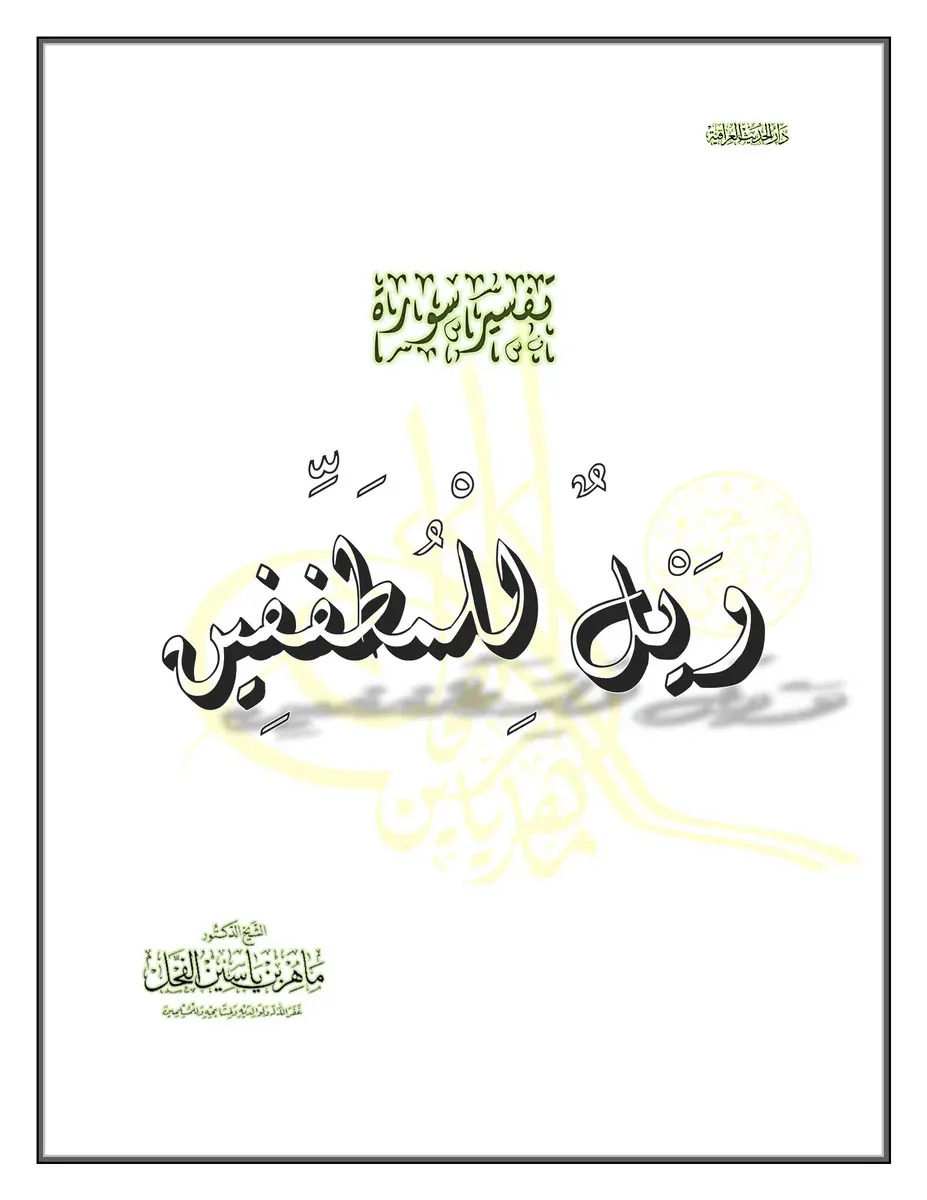 دار الحديث العراقية
تفسير سورة
وَيْلٌ لِلْمُطَفِّفِين
الشيخ الدكتور
ماهر بن ياسين الفحل
غفر الله له ولوالديه ولمشايخه وللمسلمين